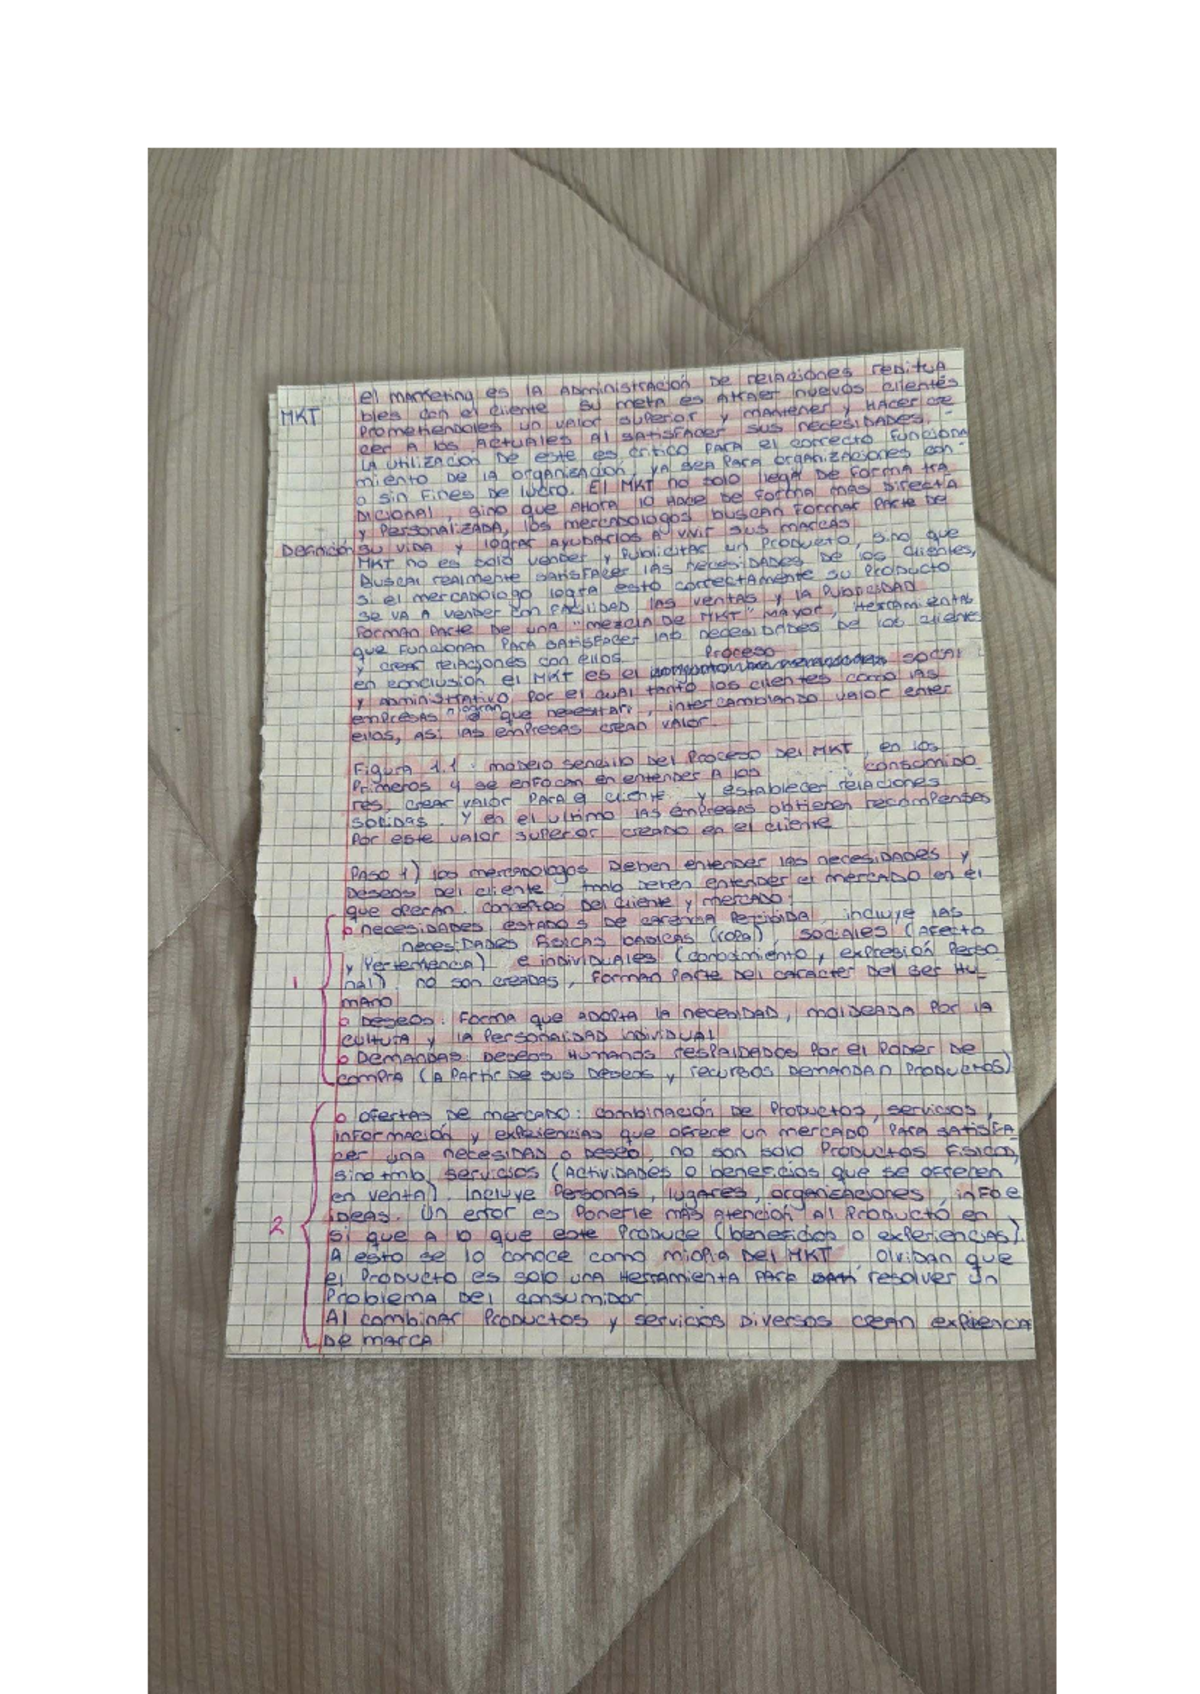 MKT
el marketing es la administración de relaciones reditua
bles con el cliente su meta es atraer nuevos clientes
prometiendoles un valor superior y mantener y hacer cre
cer a los actuales al satisfacer sus necesidades.
la utilización de este es critico para el correcto funciona
miento de la organización, ya sea para organizaciones con
o sin fines de lucro. El MKT no solo llega de forma tra
dicional, sino que ahora lo hace de forma mas directa
y personalizada, los mercadologos buscan formar parte de
su vida y lograr ayudarlos a vivir sus marcas
Definición
MKT no es solo vender y publicitar un producto, sino que
buscar realmente satisfacer las necesidades de los clientes,
si el mercadologo logra esto correctamente su producto
se va a vender con facilidad las ventas y la publicidad
forman parte de una "mezcla de MKT" mayor, herramientas
que funcionan para satisfacer las necesidades de los clientes
y crear relaciones con ellos.
Proceso
en conclusión el MKT es el social
y administrativo por el cual tanto los clientes como las
empresas logran lo que necesitan, intercambiando valor entre
ellos, asi las empresas crean valor.
Figura 1.1: modelo sencillo del proceso del MKT, en los
primeros 4 se enfocan en entender a los consumido
res, crear valor para el cliente y establecer relaciones
solidas. Y en el ultimo las empresas obtienen recompensas
por este valor superior creado en el cliente
Paso 1) los mercadologos deben entender las necesidades y
deseos del cliente tmb deben entender el mercado en el
que operan. concepto del cliente y mercado:
1
o necesidades estados de carencia percibida, incluye las
necesidades fisicas basicas (ropa), sociales (afecto
y pertenencia) e individuales (conocimiento y expresión perso
nal) no son creadas, forman parte del caracter del ser hu
mano
o Deseos: forma que adopta la necesidad, moldeada por la
cultura y la personalidad individual
o Demandas: Deseos humanos respaldados por el poder de
compra (a partir de sus deseos y recursos demandan productos)
2
o ofertas de mercado: combinación de productos, servicios,
información y experiencias que ofrece un mercado para satisfa
cer una necesidad o deseo, no son solo productos fisicos,
sino tmb servicios (actividades o beneficios que se ofrecen
en venta). Incluye personas, lugares, organizaciones, info e
ideas. Un error es ponerle mas atención al producto en
si que a lo que este produce (beneficios o experiencias).
A esto se lo conoce como miopia del MKT, olvidan que
el producto es solo una herramienta para resolver un
problema del consumidor
Al combinar productos y servicios diversos crean experiencia
de marca